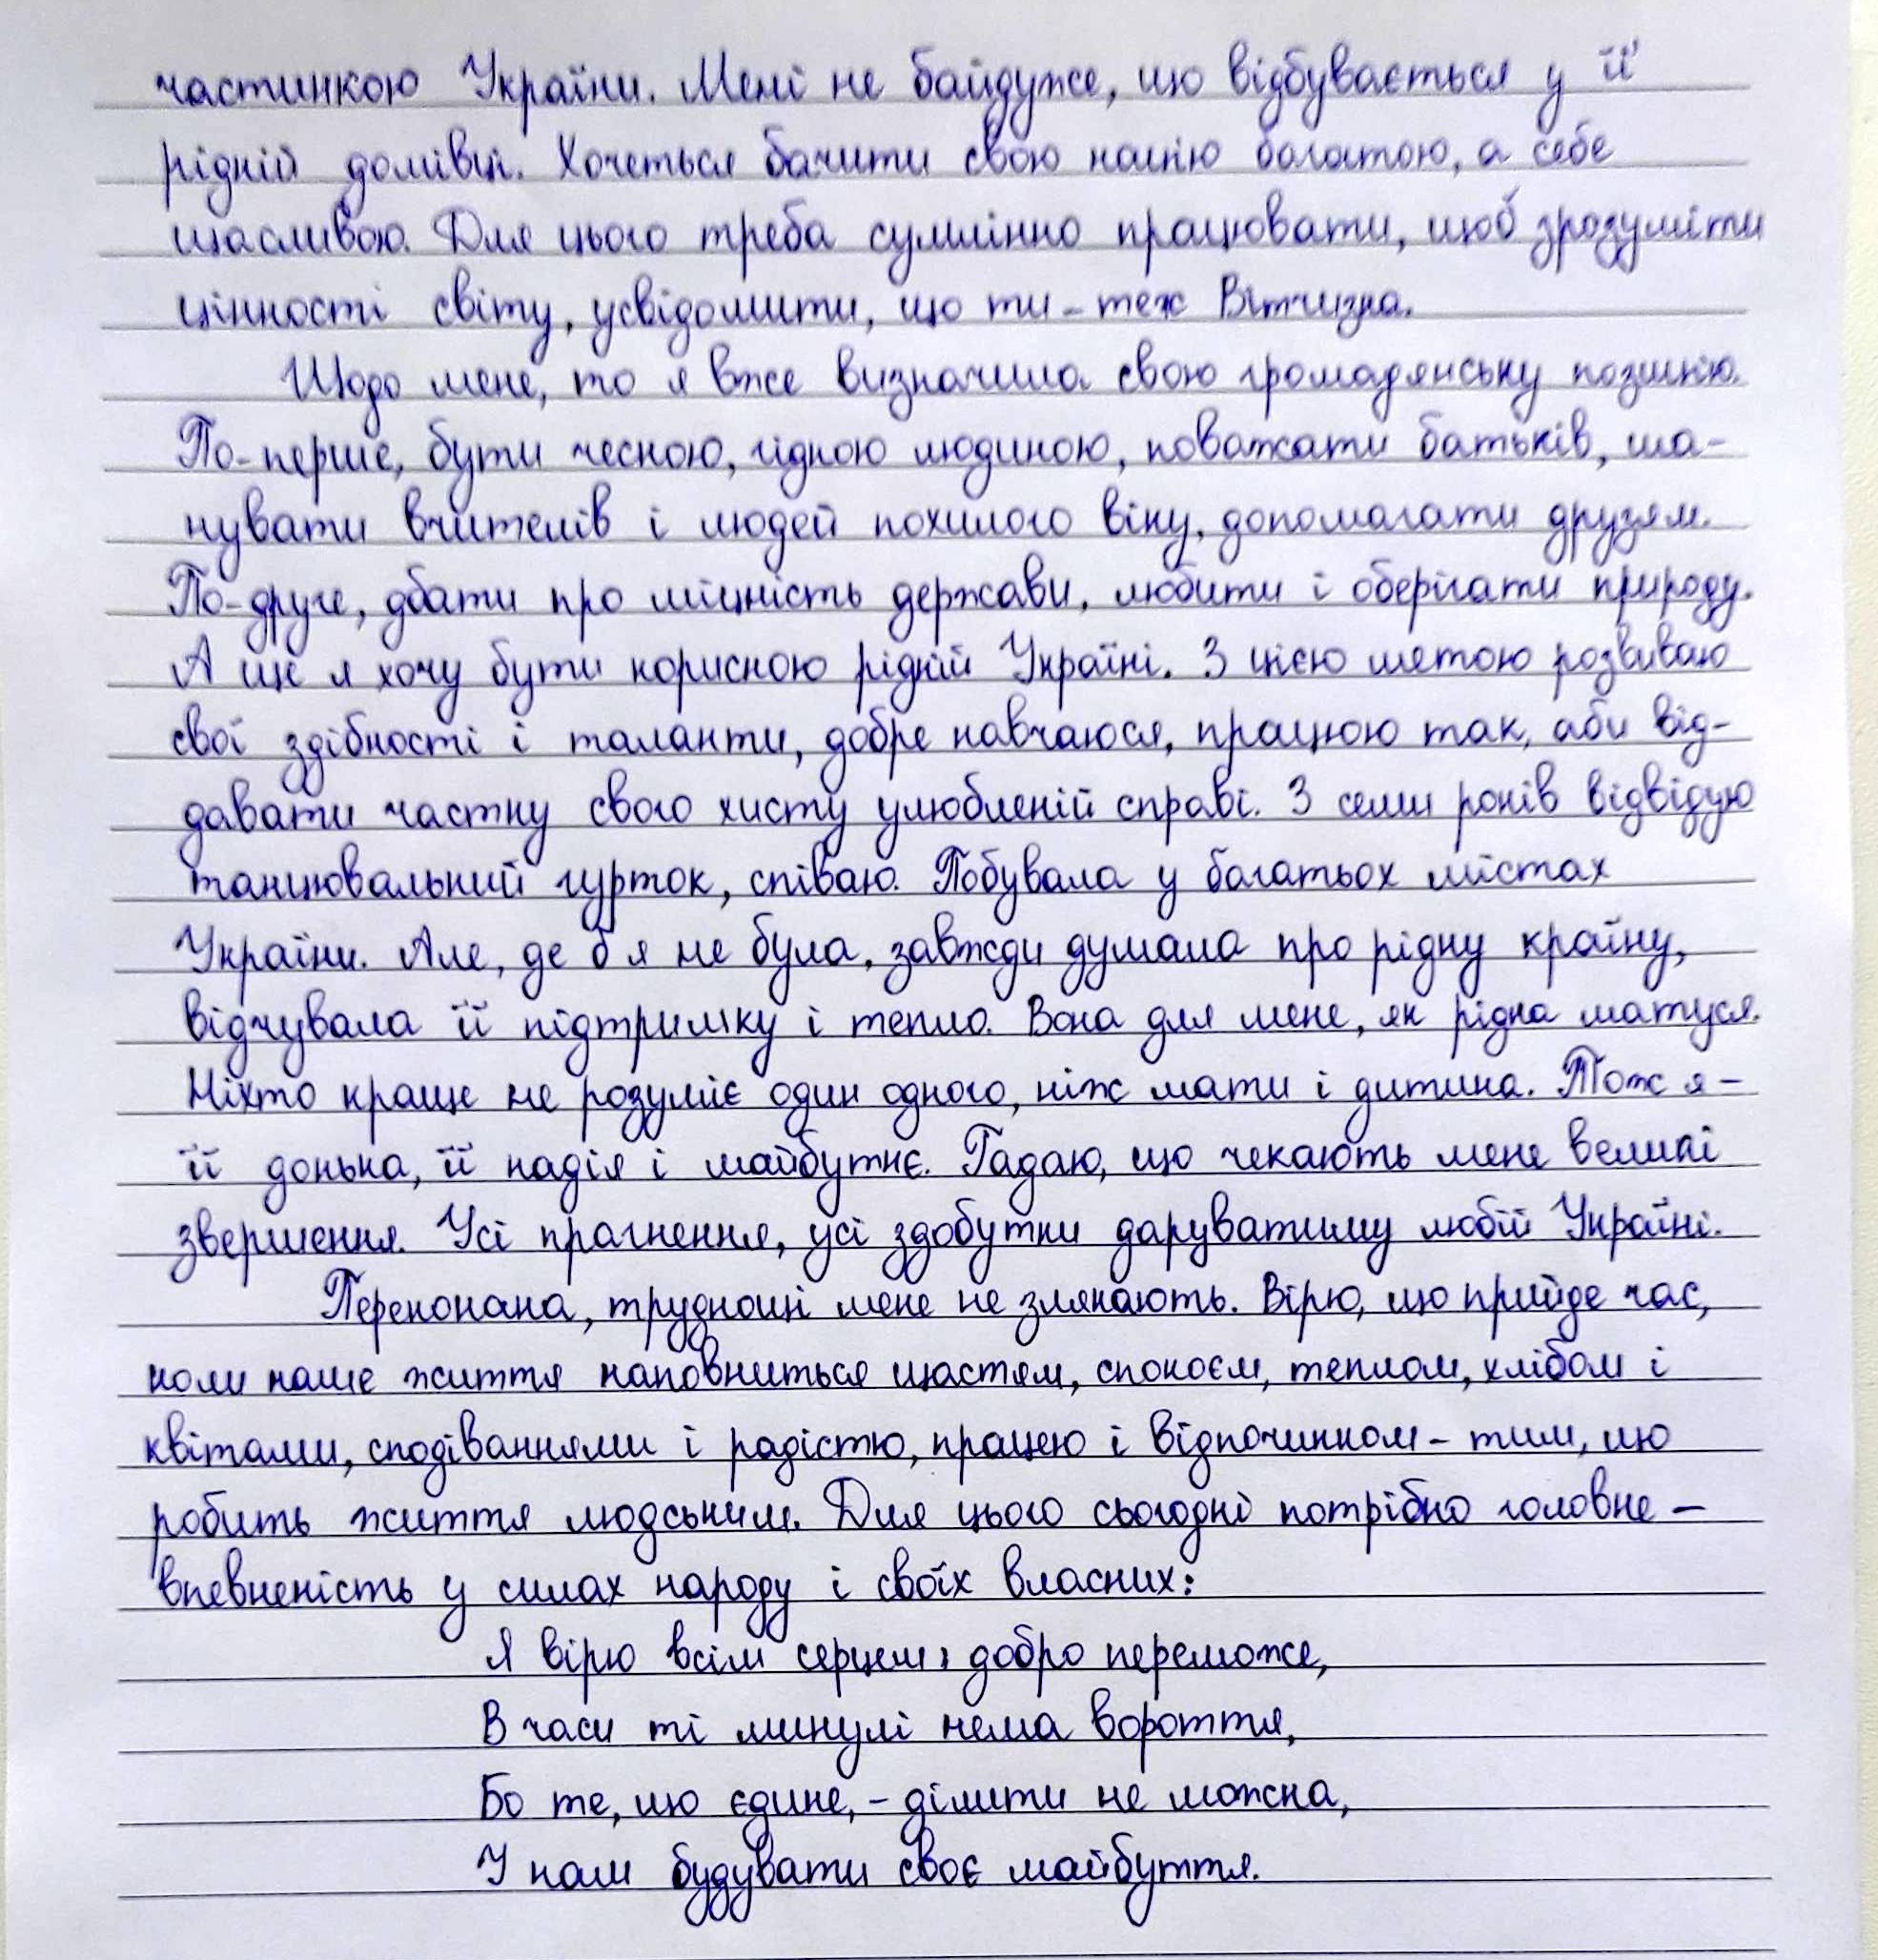 частинкою України. Мені не байдуже, що відбувається у її
рідній домівці. Хочеться бачити свою націю багатою, а себе
щасливою. Для цього треба сумлінно працювати, щоб зрозуміти
цінності світу, усвідомити, що ти - теж Вітчизна.
Щодо мене, то я вже визначила свою громадянську позицію.
По-перше, бути чесною, гідною людиною, поважати батьків, ша-
нувати вчителів і людей похилого віку, допомагати друзям.
По-друге, дбати про міцність держави, любити і оберігати природу.
А ще я хочу бути корисною рідній Україні. З цією метою розвиваю
свої здібності і таланти, добре навчаюся, працюю так, аби від-
давати частку свого хисту улюбленій справі. З семи років відвідую
танцювальний гурток, співаю. Побувала у багатьох містах
України. Але, де б я не була, завжди думала про рідну країну,
відчувала її підтримку і тепло. Вона для мене, як рідна матуся.
Ніхто краще не розуміє один одного, ніж мати і дитина. Тож я -
її донька, її надія і майбутнє. Гадаю, що чекають мене великі
звершення. Усі прагнення, усі здобутки даруватиму любій Україні.
Переконана, труднощі мене не злякають. Вірю, що прийде час,
коли наше життя наповниться щастям, спокоєм, теплом, хлібом і
квітами, сподіваннями і радістю, працею і відпочинком - тим, що
робить життя людським. Для цього сьогодні потрібно головне -
впевненість у силах народу і своїх власних:
Я вірю всім серцем: добро переможе,
В часи ті минулі нема вороття,
Бо те, що єдине, - ділити не можна,
І нам будувати своє майбуття.